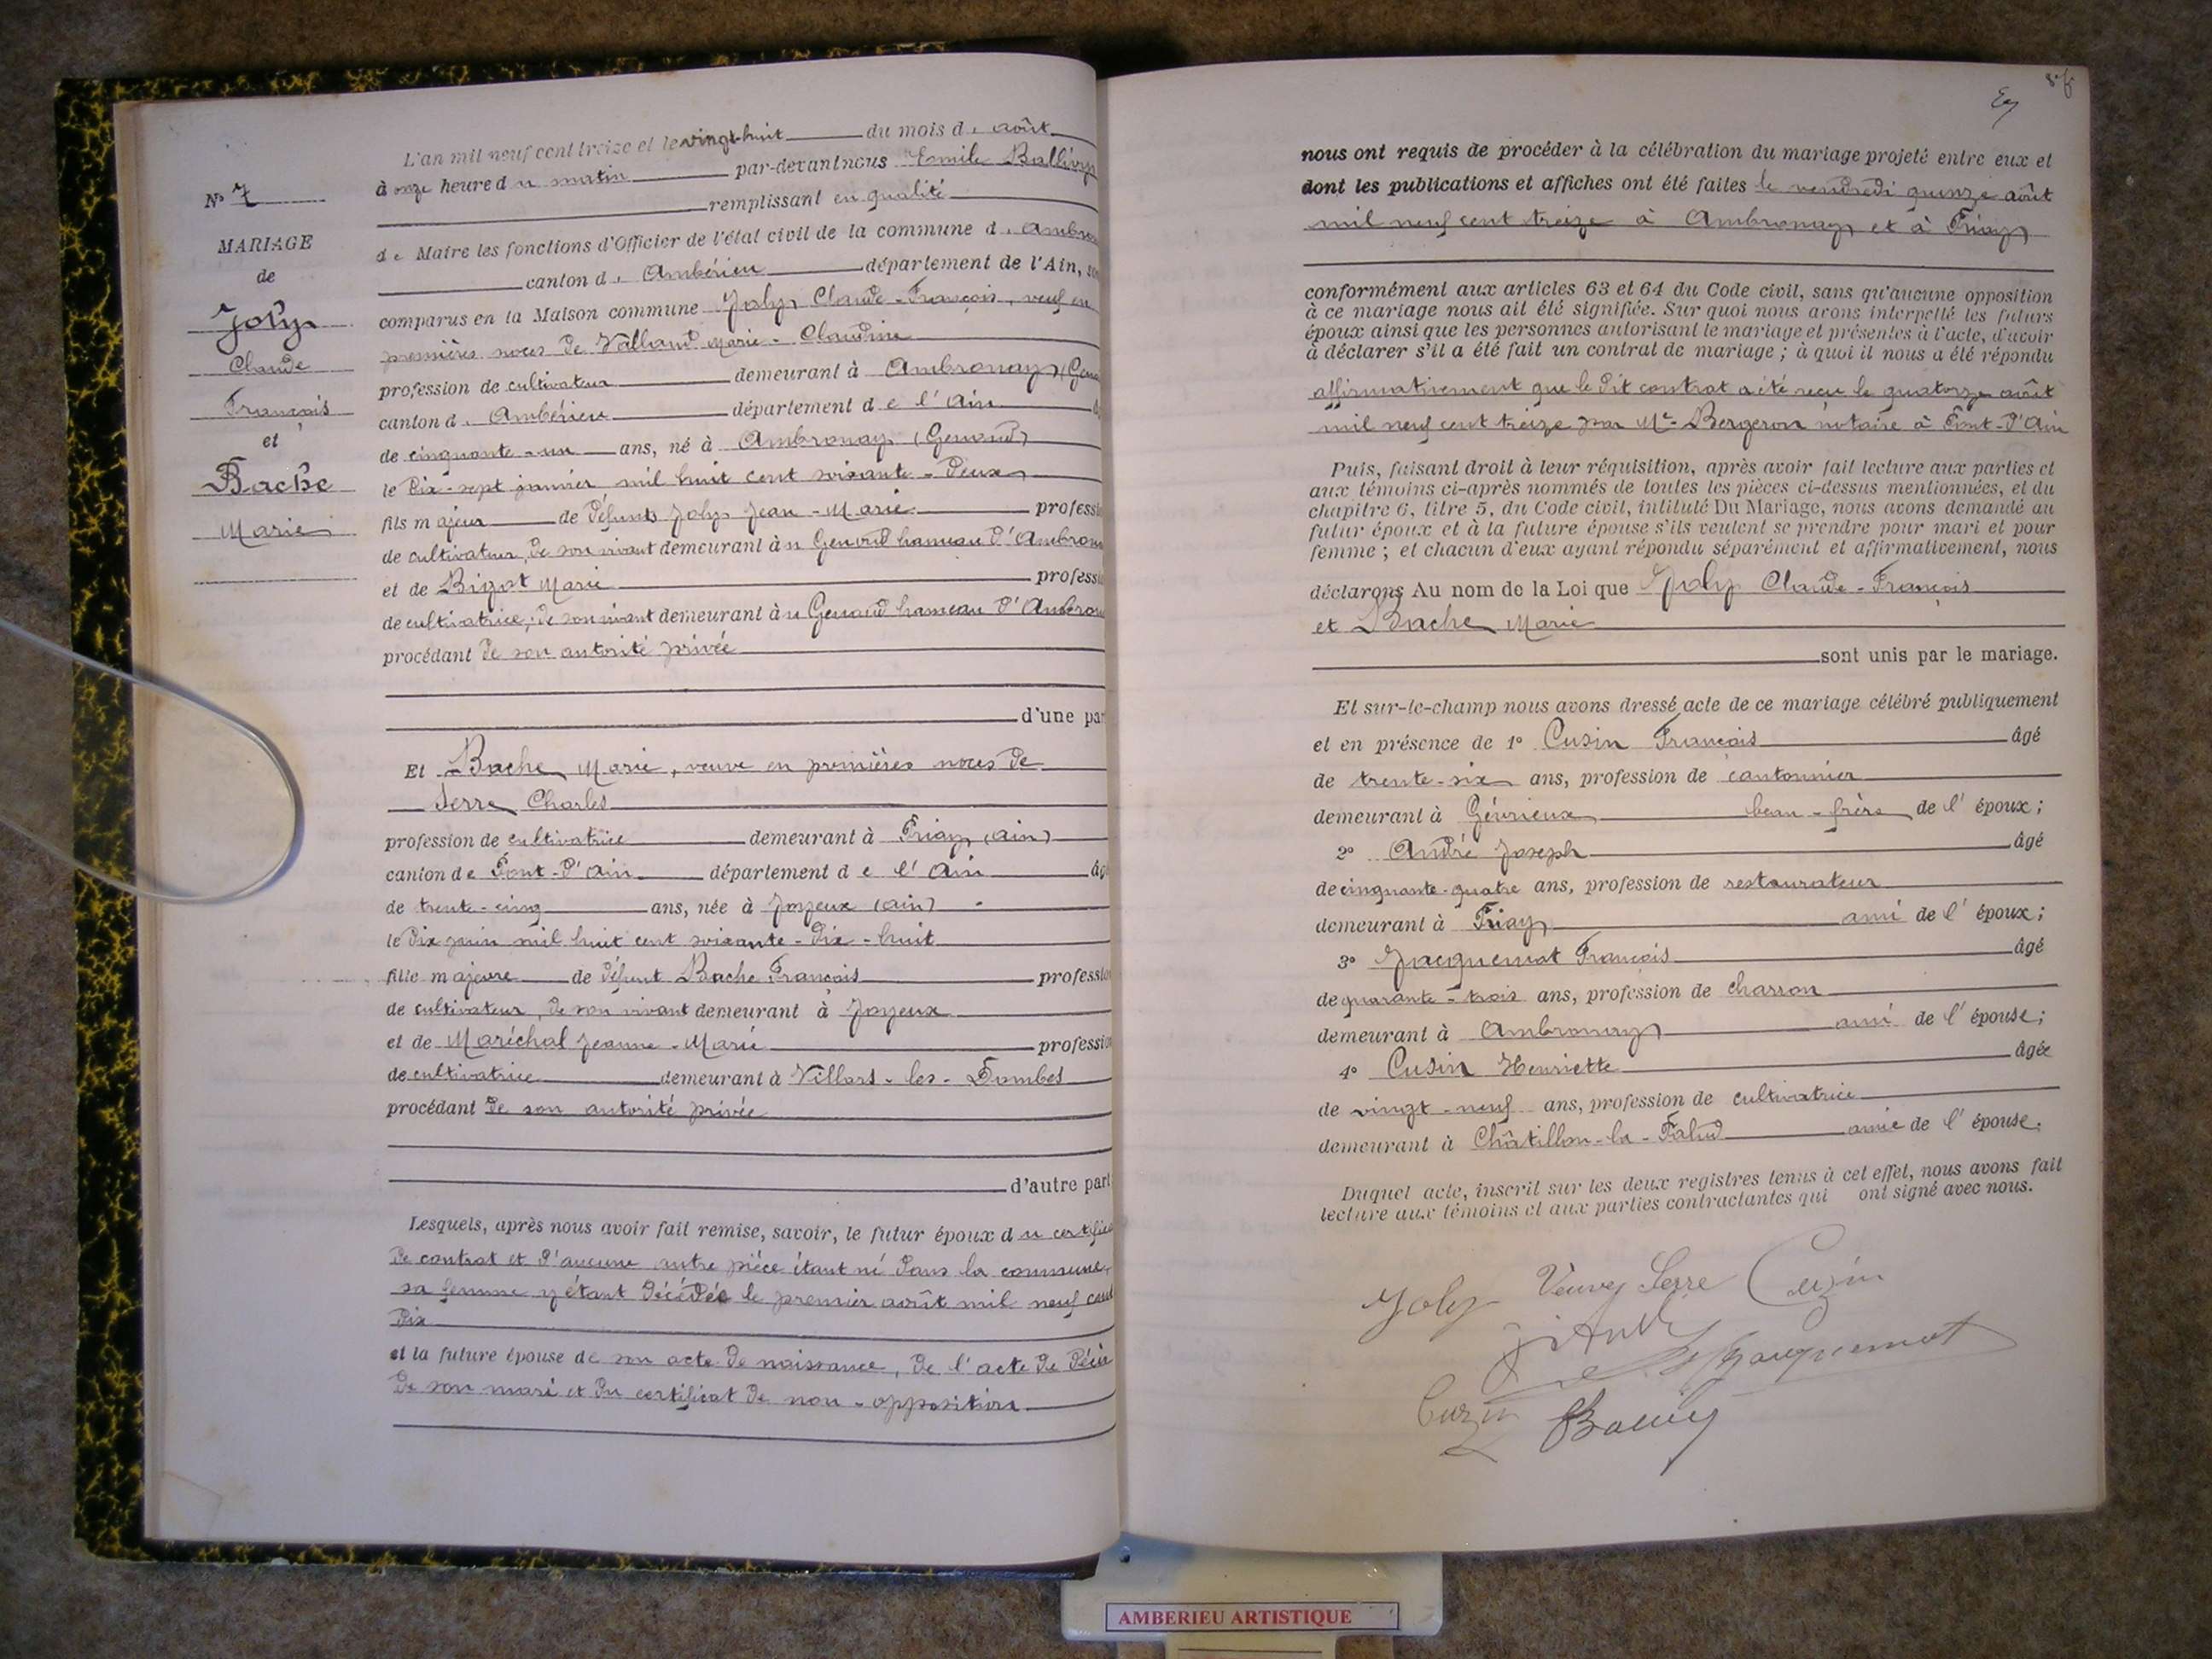 Nº 7
MARIAGE
de
Joly
Claude
François
et
Bache
Marie
L'an mil neuf cent treize et le vingt-huit du mois d. août
à onze heure du matin par-devant nous Emile Ballivy
remplissant en qualité
de Maire les fonctions d'Officier de l'état civil de la commune d. Ambro
canton d. Ambérieu département de l'Ain,
comparus en la Maison commune Joly Claude-François, veuf en
premières noces de Valland Marie-Claudine
profession de cultivateur demeurant à Ambronay (Gen
canton d. Ambérieu département de l'Ain
de cinquante-un ans, né à Ambronay (Genoud)
le dix-sept janvier mil huit cent soixante-deux
fils majeur de défunts Joly Jean-Marie professi
de cultivateur, de son vivant demeurant àu Genoud hameau d'Ambron
et de Bizot Marie professi
de cultivatrice, de son vivant demeurant àu Genoud hameau d'Ambron
procédant de son autorité privée
d'une par
Et Bache Marie, veuve en premières noces de
Serre Charles
profession de cultivatrice demeurant à Priay (Ain)
canton de Pont-d'Ain département de l'Ain âg
de trente-cinq ans, née à Joyeux (Ain)
le dix juin mil huit cent soixante-dix-huit
fille majeure de défunt Bache François professio
de cultivateur, de son vivant demeurant à Joyeux
et de Maréchal Jeanne-Marie professio
de cultivatrice demeurant à Villars-les-Dombes
procédant de son autorité privée
d'autre part
Lesquels, après nous avoir fait remise, savoir, le futur époux du certific
de contrat et d'aucune autre pièce étant né dans la commune,
sa femme y étant décédée le premier août mil neuf cent
dix
et la future épouse de son acte de naissance, de l'acte de décès
de son mari et du certificat de non-opposition
nous ont requis de procéder à la célébration du mariage projeté entre eux et
dont les publications et affiches ont été faites le vendredi quinze août
mil neuf cent treize à Ambronay et à Priay
conformément aux articles 63 et 64 du Code civil, sans qu'aucune opposition
à ce mariage nous ait été signifiée. Sur quoi nous avons interpellé les futurs
époux ainsi que les personnes autorisant le mariage et présentes à l'acte, d'avoir
à déclarer s'il a été fait un contrat de mariage ; à quoi il nous a été répondu
affirmativement que le dit contrat a été reçu le quatorze août
mil neuf cent treize par Me Bergeron notaire à Pont-d'Ain
Puis, faisant droit à leur réquisition, après avoir fait lecture aux parties et
aux témoins ci-après nommés de toutes les pièces ci-dessus mentionnées, et du
chapitre 6, titre 5, du Code civil, intitulé Du Mariage, nous avons demandé au
futur époux et à la future épouse s'ils veulent se prendre pour mari et pour
femme ; et chacun d'eux ayant répondu séparément et affirmativement, nous
déclarons Au nom de la Loi que Joly Claude-François
et Bache Marie
sont unis par le mariage.
Et sur-le-champ nous avons dressé acte de ce mariage célébré publiquement
et en présence de 1º Cusin François âgé
de trente-six ans, profession de cantonnier
demeurant à Gévrieux beau-frère de l'époux ;
2º André Joseph âgé
de cinquante-quatre ans, profession de restaurateur
demeurant à Priay ami de l'époux ;
3º Jacquemot François âgé
de quarante-trois ans, profession de charron
demeurant à Ambronay ami de l'épouse ;
4º Cusin Henriette âgée
de vingt-neuf ans, profession de cultivatrice
demeurant à Châtillon-la-Palud amie de l'épouse.
Duquel acte, inscrit sur les deux registres tenus à cet effet, nous avons fait
lecture aux témoins et aux parties contractantes qui ont signé avec nous.
Joly Veuve Serre Cuzin
Jacquemot
Cuzin
AMBERIEU ARTISTIQUE